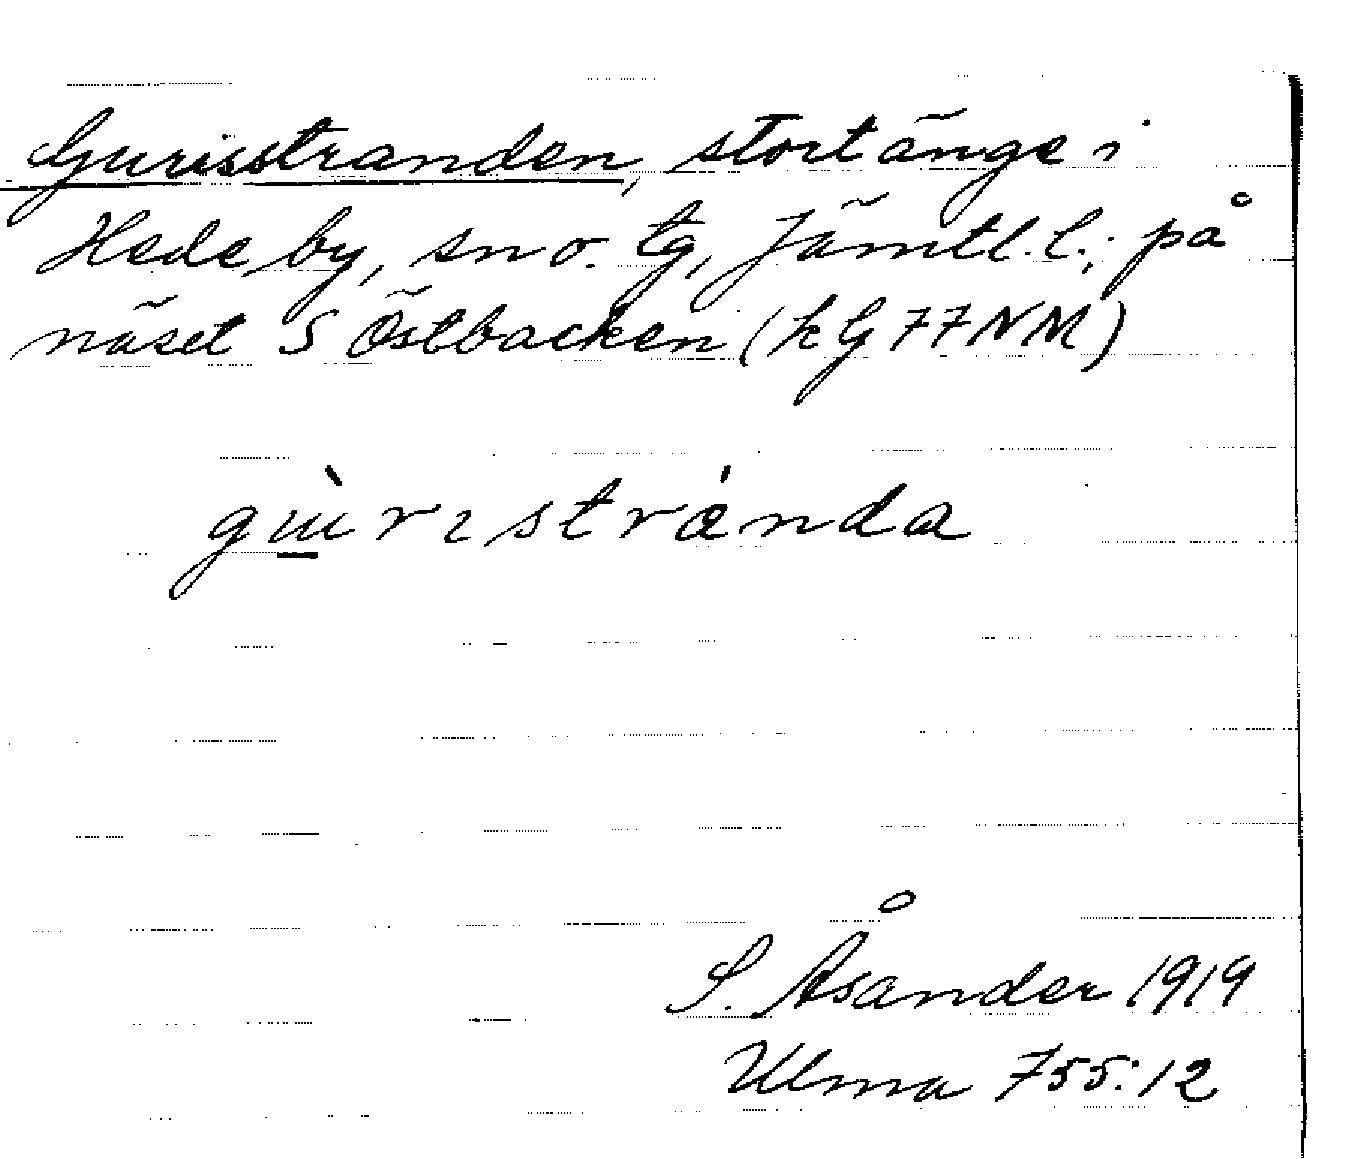 Gurisstranden, stort änge i
Hede by, sn o. tg, Jämtl. l.; på
näset S Östbacken (kG77NM)
gùrɩstránda
S. Åsander 1919
Ulma 755:12